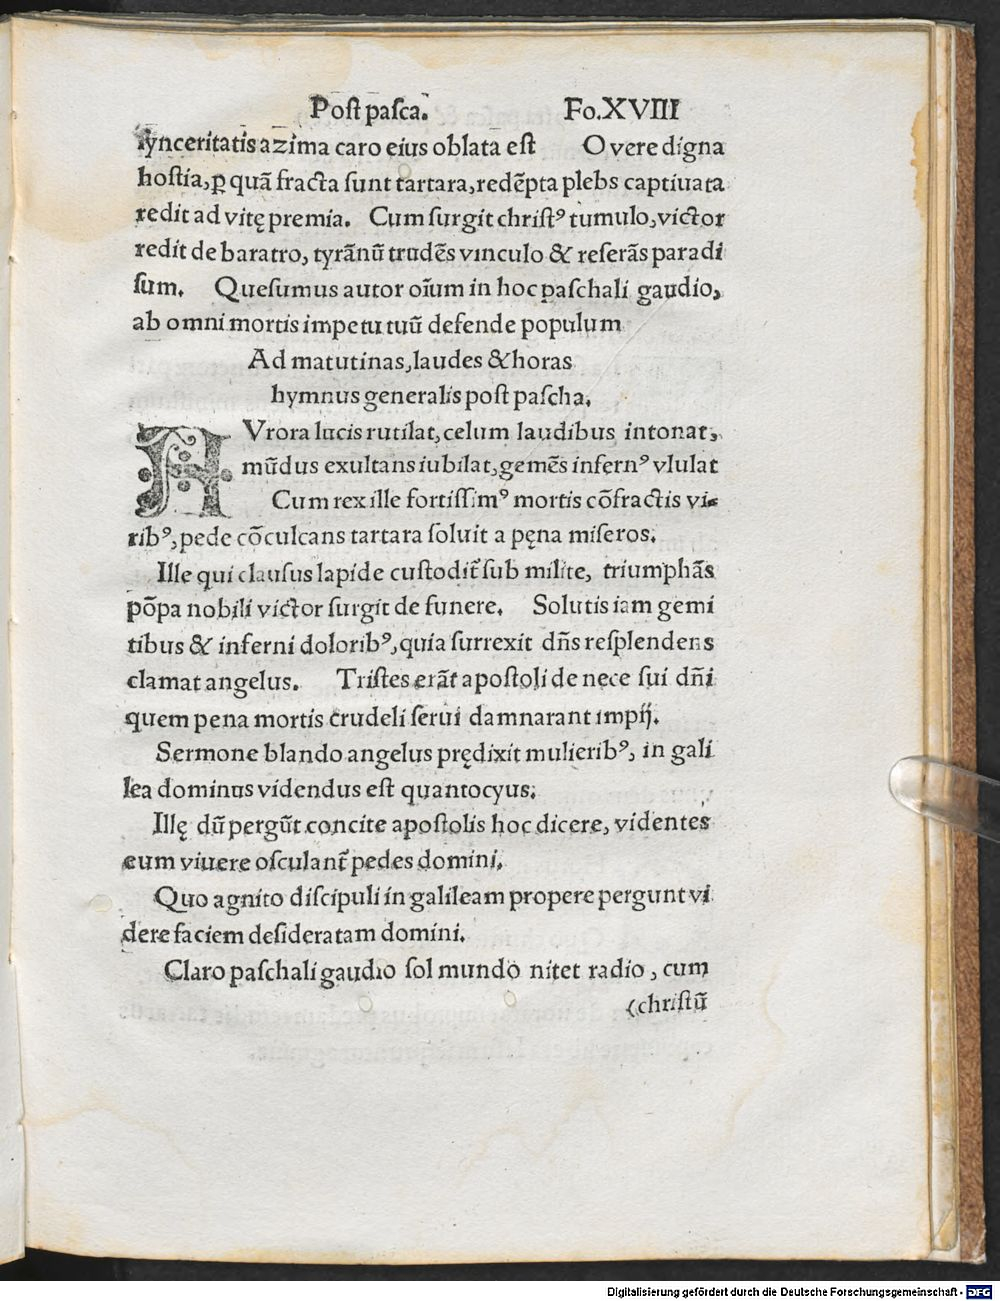 Post pasca. Fo.XVIII
synceritatis azima caro eius oblata est O vere digna
hostia, ꝑ quã fracta sunt tartara, redẽpta plebs captiuata
redit ad vitę premia. Cum surgit christꝰ tumulo, victor
redit de baratro, tyrãnũ trudẽs vinculo & reserãs paradi
sum. Quesumus autor oĩum in hoc paschali gaudio,
ab omni mortis impetu tuũ defende populum
Ad matutinas, laudes & horas
hymnus generalis post pascha.
AVrora lucis rutilat, celum laudibus intonat,
mũdus exultans iubilat, gemẽs infernꝰ vlulat
Cum rex ille fortissimꝰ mortis cõfractis vi-
ribꝰ, pede cõculcans tartara soluit a pęna miseros.
Ille qui clausus lapide custodit᷑ sub milite, triumphãs
põpa nobili victor surgit de funere. Solutis iam gemi
tibus & inferni doloribꝰ, quia surrexit dñs resplendens
clamat angelus. Tristes erãt apostoli de nece sui dñi
quem pena mortis crudeli serui damnarant impij.
Sermone blando angelus prędixit mulieribꝰ, in gali
lea dominus videndus est quantocyus.
Illę dũ pergũt concite apostolis hoc dicere, videntes
eum viuere osculant᷑ pedes domini.
Quo agnito discipuli in galileam propere pergunt vi
dere faciem desideratam domini.
Claro paschali gaudio sol mundo nitet radio, cum
(christũ
Digitalisierung gefördert durch die Deutsche Forschungsgemeinschaft - DFG